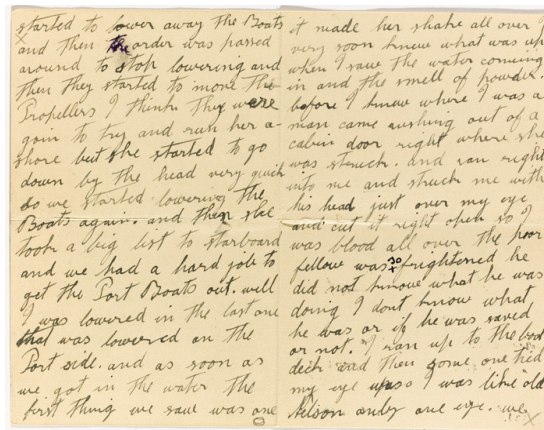 started to lower away the Boats
and then the order was passed
around to stop lowering and
then they started to move the
Propellers I think they were
goin to try and run her a-
shore but she started to go
down by the head very quick
so we started lowering the
Boats again. and then she
took a big list to starboard
and we had a hard job to
get the Port Boats out. well
I was lowered in the last one
that was lowered on the
Port side. and as soon as
we got in the water the
first thing we saw was one
it made her shake all over I
very soon knew what was up
when I saw the water coming
in and the smell of powder.
before I knew where I was a
man came rushing out of a
cabin door right where she
was struck. and ran right
into me and struck me with
his head just over my eye
and cut it right open so I
was blood all over the poor
fellow was so frightened he
did not know what he was
doing I dont know what
he was or if he was saved
or not. I ran up to the boat
deck and then some one tied
my eye up so I was like old
Nelson only one eye. we